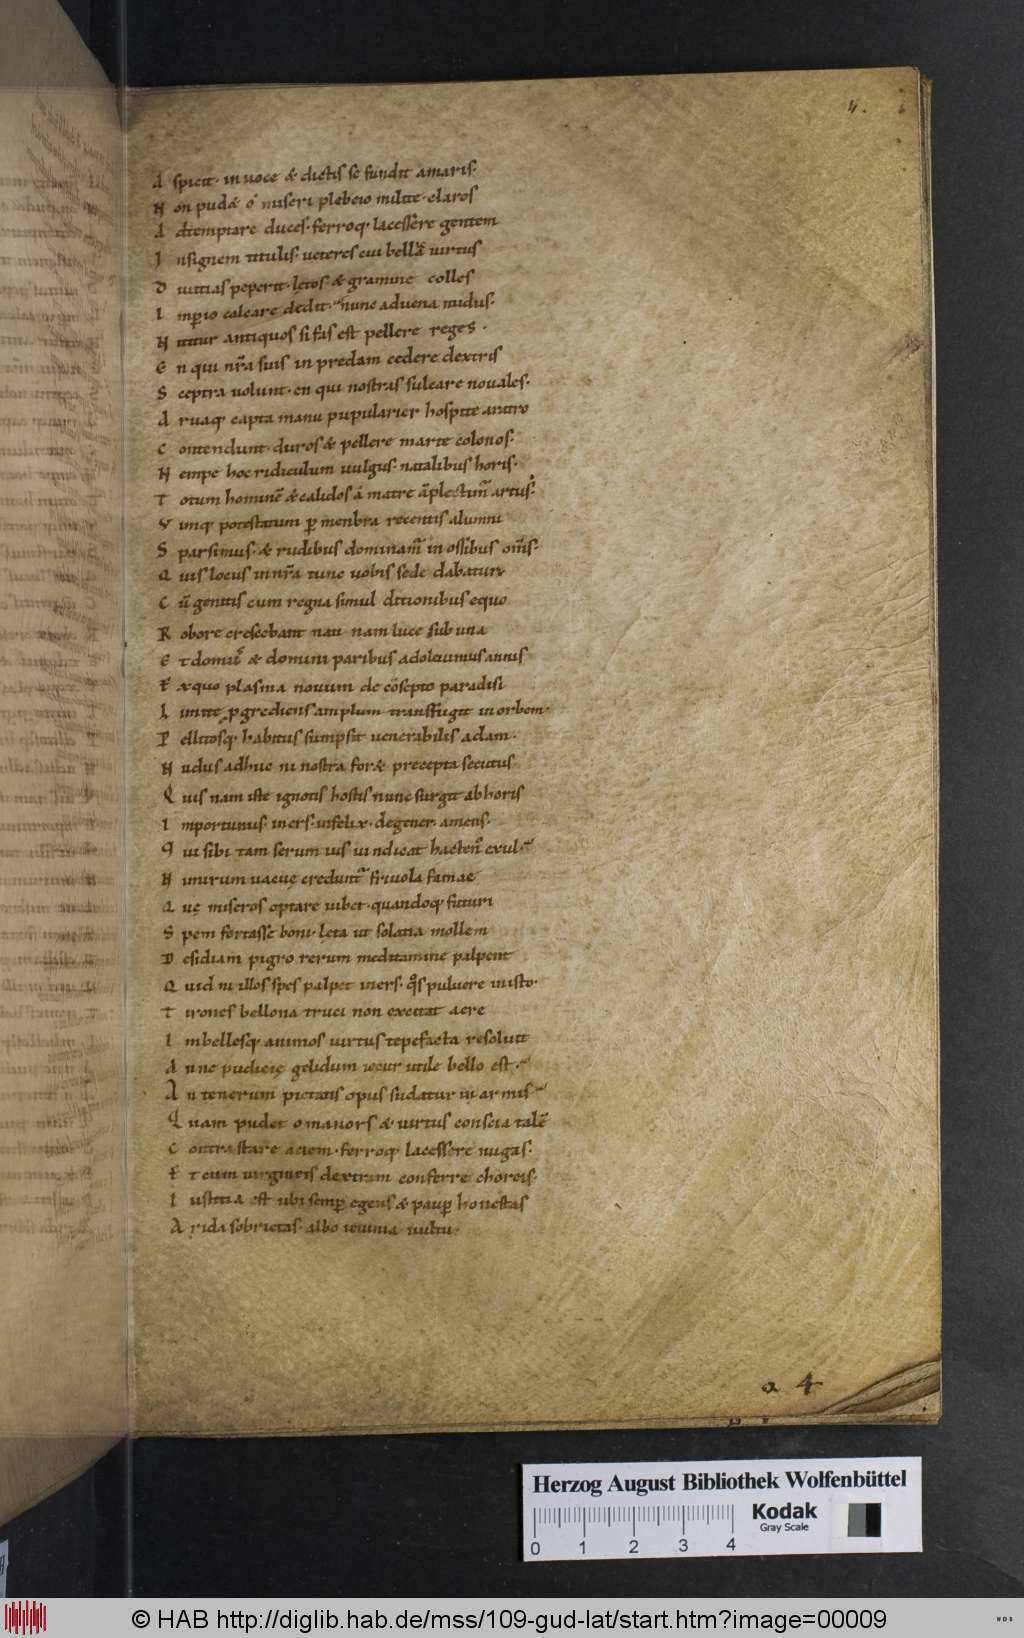 4.
A spicit· in uoce & dictis se fundit amaris·
N on pud& o miseri plebeio milite· claros
A dtemptare duces· ferroq; lacessere gentem
I nsignem titulis· ueteres cui bellā uirtus
D iuitias peperit· letos & gramine colles
I mꝑio calcare dedit· nunc aduena nudus·
N ititur antiquos si fas est pellere reges·
E n qui nr̄a suis in predam cedere dextris
S ceptra uolunt· en qui nostras sulcare nouales·
A ruaq; capta manu pupularier hospite aratro
C ontendunt· duros & pellere marte colonos·
N empe hoc ridiculum uulgus· natalibus horis·
T otum hominē & calidos á matre āplectim̄ artus·
V imq; potestatum ꝑ menbra recentis alumni
S parsimus· & rudibus dominam̄ in ossibus om̄s·
Q uis locus in nr̄a tunc uobis sede dabatur
C ū gentis cum regna simul ditionibus equo
R obore crescebant nati nam luce sub una
E t domus & domini paribus adoleuimus annis
E xquo plasma nouum de cōsepto paradisi
L imite ꝓgrediens amplum transfugit in orbem·
P ellitosq; habitus sumpsit uenerabilis adam·
N udus adhuc ni nostra for& precepta secutus
Q uis nam iste ignotis hostis nunc surgit ab horis
I mportunus· iners· infelix· degener· amens·
Q ui sibi tam serum ius uindicat hacten; exul·
N imirum uacuę credunt̄ friuola famae
Q uę miseros optare iubet· quandoq; futuri
S pem fortasse boni· leta ut solatia mollem
D esidiam pigro rerum meditamine palpent
Q uid ni illos spes palpet iners· q̊s puluere in isto·
T irones bellona truci non excitat aere
I mbellesq; animos uirtus tepefacta resoluit
A nne pudicię gelidum iecur utile bello est·
A n tenerum pietatis opus sudatur in armis
Q uam pudet o mauors & uirtus conscia talē
C ontra stare aciem· ferroq; lacessere nugas·
E t cum uirgineis dextram conferre choreis·
I ustitia est ubi semꝑ egens & pauꝑ honestas
A rida sobrietas· albo ieiunia uultu·
a 4
Herzog August Bibliothek Wolfenbüttel
Kodak
Gray Scale
0 1 2 3 4
© HAB http://diglib.hab.de/mss/109-gud-lat/start.htm?image=00009